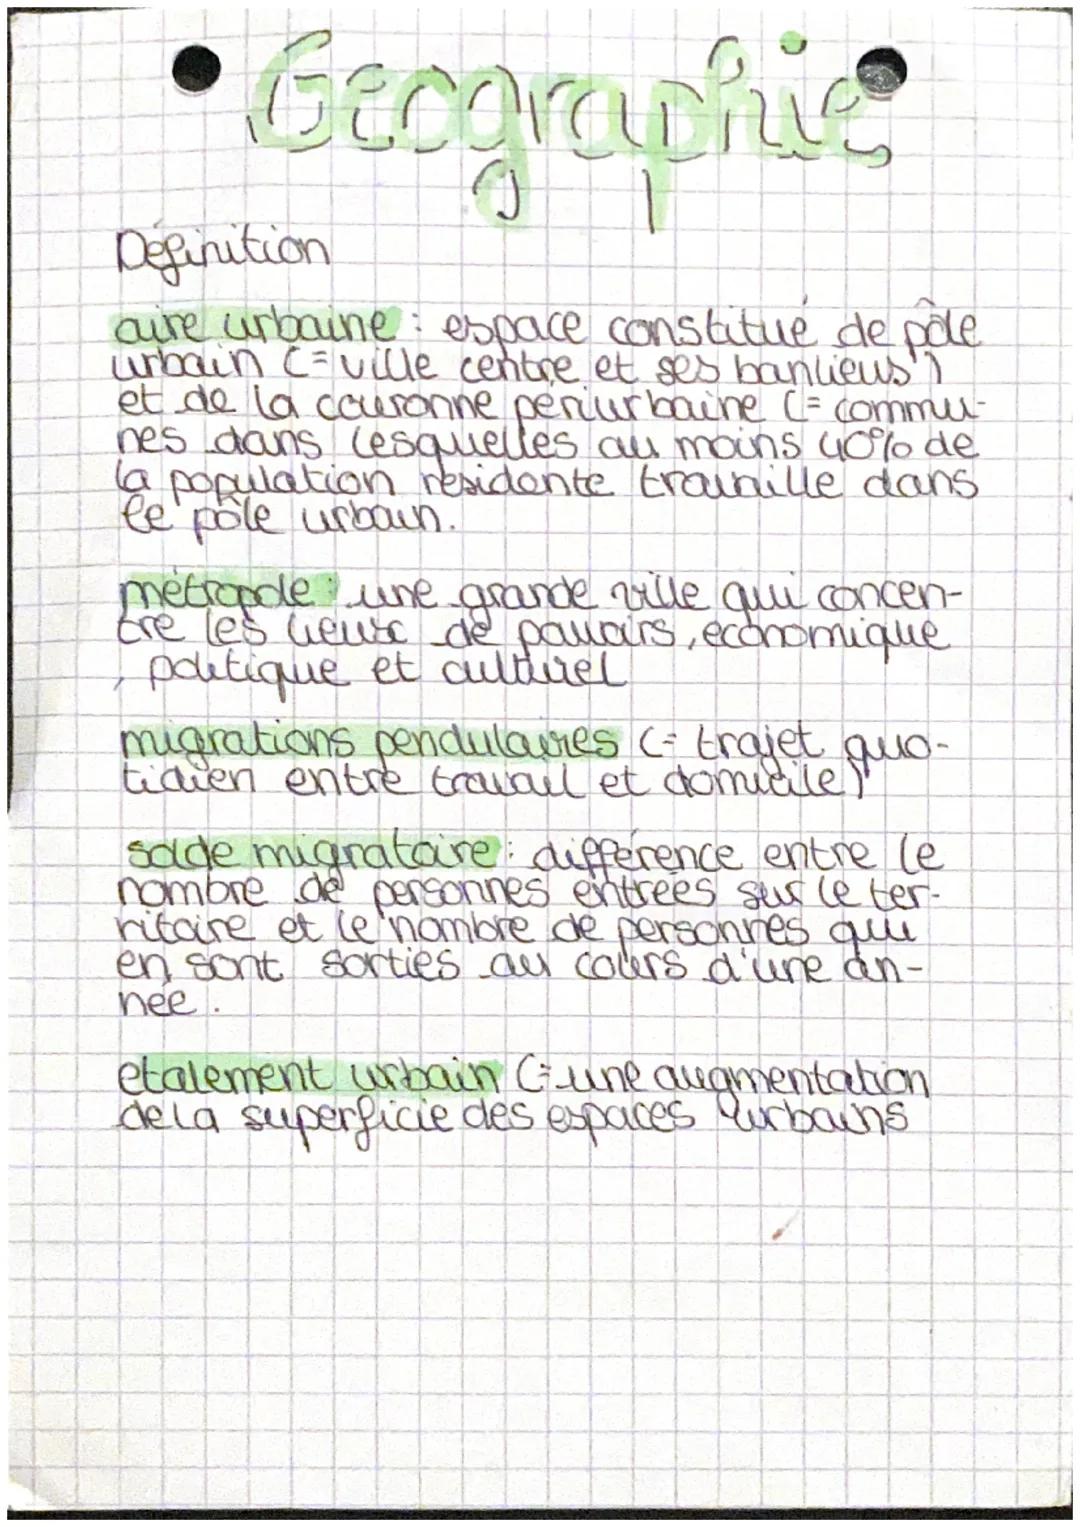 Geographie
Définition
aire urbaine : espace constitué de pôle
urbain (= ville centre et ses banlieus)
et de la couronne périurbaine (= commu-
nes dans lesquelles au moins 40% de
la population résidente travaille dans
le pôle urbain.
métropole : une grande ville qui concen-
tre les lieux de pouvoirs, économique
, politique et culturel
migrations pendulaires (= trajet quo-
tidien entre travail et domicile)
solde migratoire : différence entre le
nombre de personnes entrées sur le ter-
ritoire et le nombre de personnes qui
en sont sorties au cours d'une an-
née.
etalement urbain (= une augmentation
de la superficie des espaces urbains